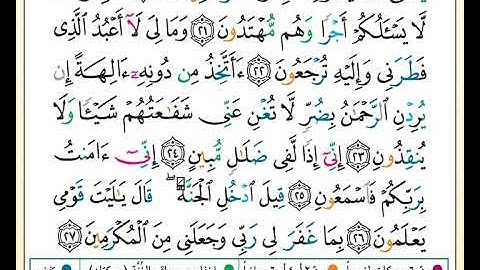 لَّا يَسْـَٔلُكُمْ أَجْرًا وَهُم مُّهْتَدُونَ ٢١ وَمَا لِىَ لَآ أَعْبُدُ ٱلَّذِى
فَطَرَنِى وَإِلَيْهِ تُرْجَعُونَ ٢٢ ءَأَتَّخِذُ مِن دُونِهِۦٓ ءَالِهَةً إِن
يُرِدْنِ ٱلرَّحْمَٰنُ بِضُرٍّ لَّا تُغْنِ عَنِّى شَفَٰعَتُهُمْ شَيْـًٔا وَلَا
يُنقِذُونِ ٢٣ إِنِّىٓ إِذًا لَّفِى ضَلَٰلٍ مُّبِينٍ ٢٤ إِنِّىٓ ءَامَنتُ
بِرَبِّكُمْ فَٱسْمَعُونِ ٢٥ قِيلَ ٱدْخُلِ ٱلْجَنَّةَ ۖ قَالَ يَٰلَيْتَ قَوْمِى
يَعْلَمُونَ ٢٦ بِمَا غَفَرَ لِى رَبِّى وَجَعَلَنِى مِنَ ٱلْمُكْرَمِينَ ٢٧